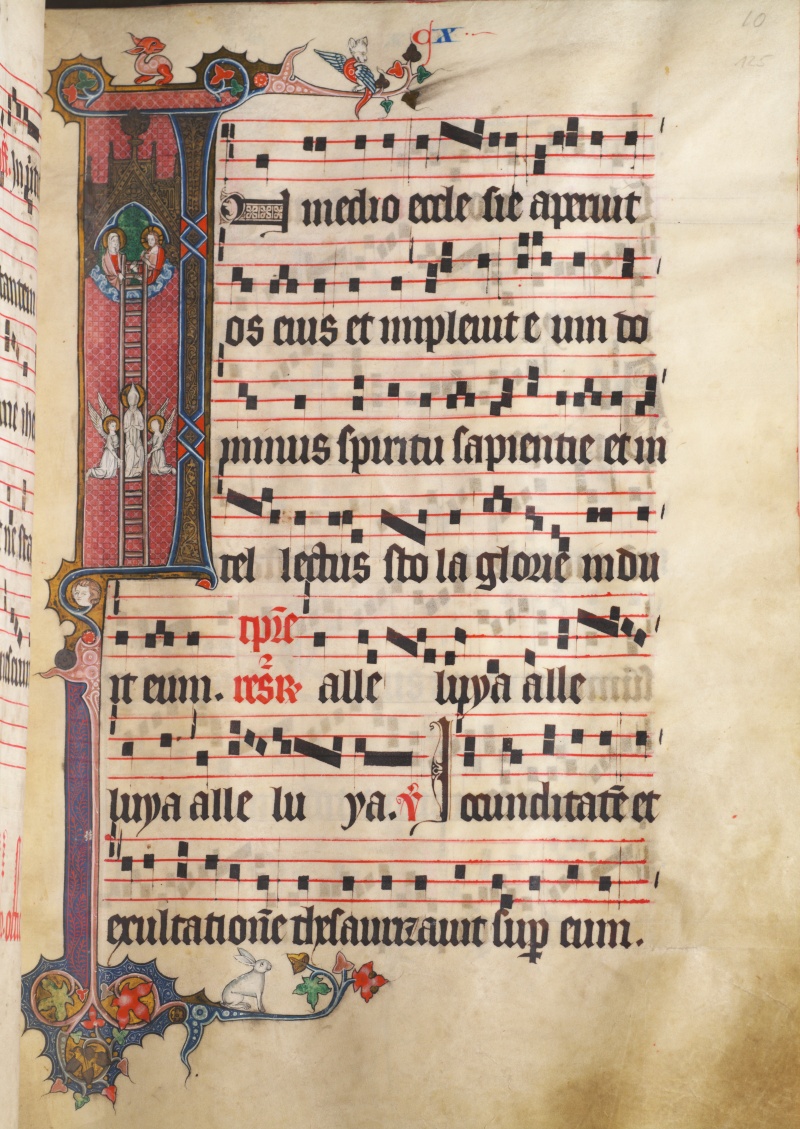 gx
10
125
In medio eccle sie aperuit
os eius et impleuit e um do
minus spiritu sapientie et in
tel lectus sto la glorie indu
it eum. tp̄re resꝶ alle luya alle
luya alle lu ya. ℣ Iocunditatē et
exultationē thesaurizauit sup eum.